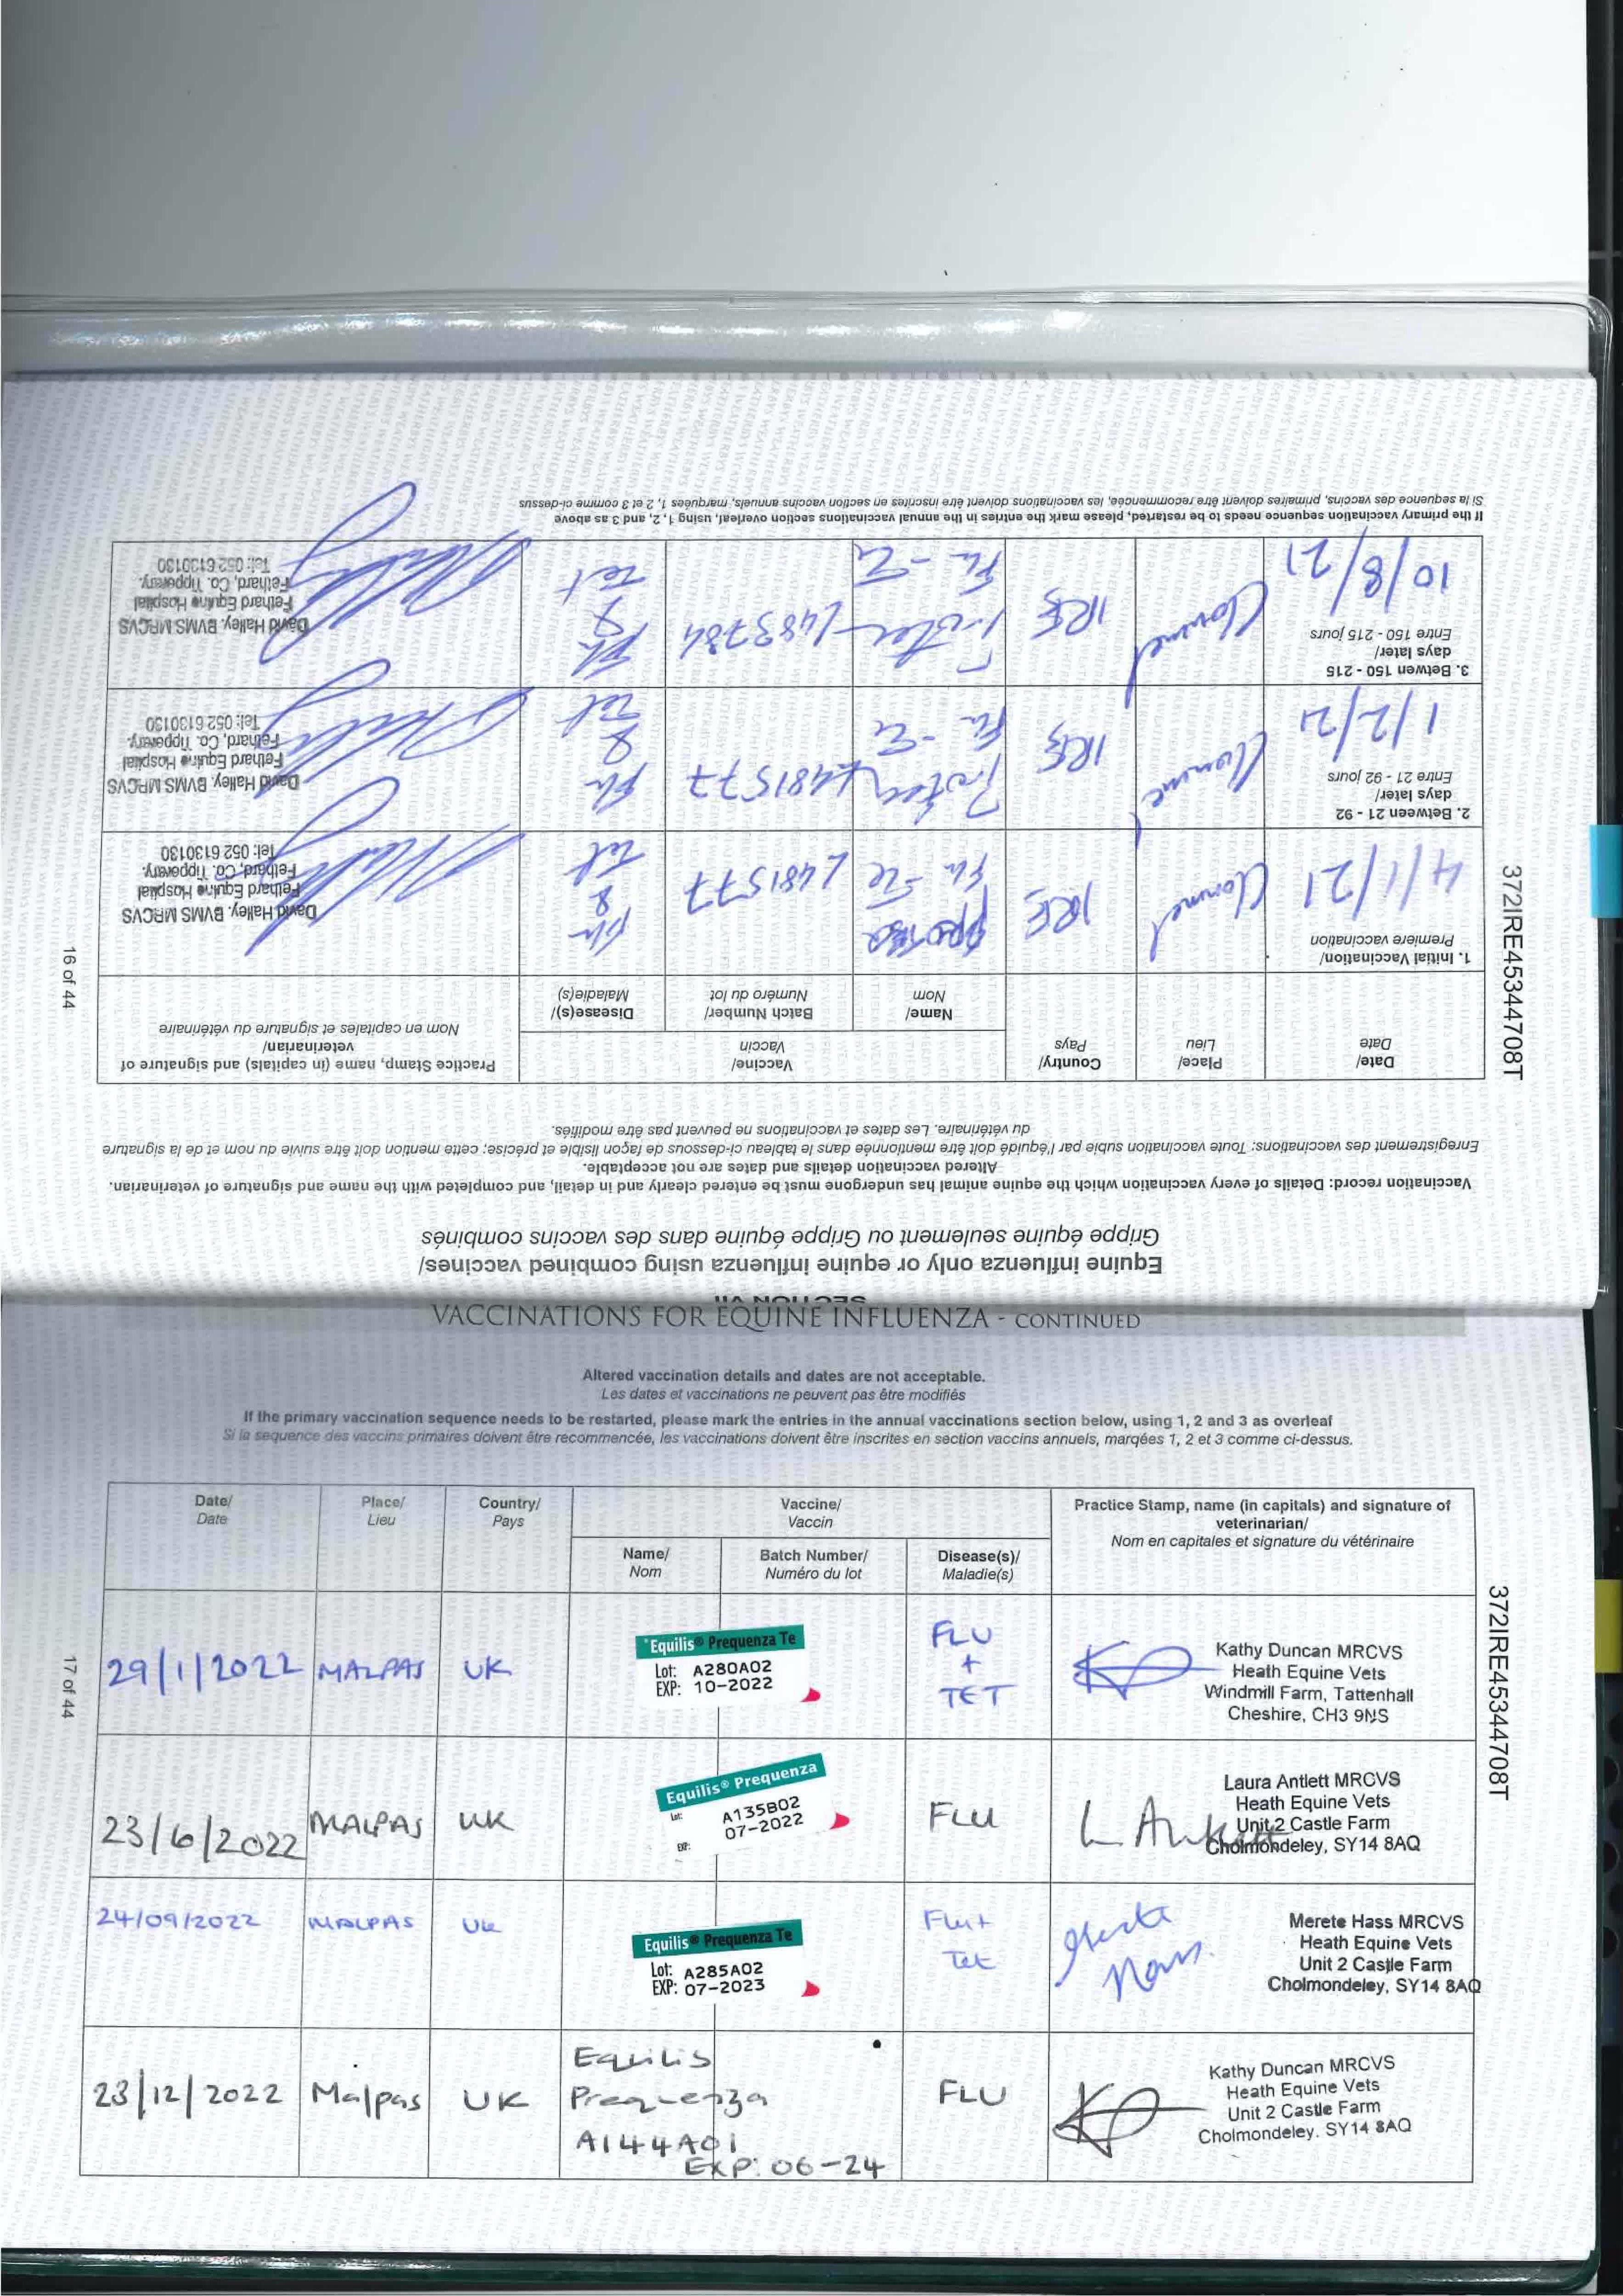 SECTION VII
Equine influenza only or equine influenza using combined vaccines/
Grippe équine seulement ou Grippe équine dans des vaccins combinés
Vaccination record: Details of every vaccination which the equine animal has undergone must be entered clearly and in detail, and completed with the name and signature of veterinarian.
Altered vaccination details and dates are not acceptable.
Enregistrement des vaccinations: Toute vaccination subie par l'équidé doit être mentionnée dans le tableau ci-dessous de façon lisible et précise; cette mention doit être suivie du nom et de la signature
du vétérinaire. Les dates et vaccinations ne peuvent pas être modifiés.
Date/
Date
Place/
Lieu
Country/
Pays
Vaccine/
Vaccin
Name/
Nom
Batch Number/
Numéro du lot
Disease(s)/
Maladie(s)
Practice Stamp, name (in capitals) and signature of
veterinarian/
Nom en capitales et signature du vétérinaire
1. Initial Vaccination/
Premiere vaccination
4/1/21
Clonmel
IRE
Flu - Te
L481577
Flu
&
tet
David Halley. BVMS MRCVS
Fethard Equine Hospital
Fethard, Co. Tipperary.
Tel: 052 6130130
2. Between 21 - 92
days later/
Entre 21 - 92 jours
1/2/21
Clonmel
IRE
L481577
Flu
&
tet
David Halley. BVMS MRCVS
Fethard Equine Hospital
Fethard, Co. Tipperary.
Tel: 052 6130130
3. Betwen 150 - 215
days later/
Entre 150 - 215 jours
10/8/21
Clonmel
IRE
L483784
Flu
&
tet
David Halley. BVMS MRCVS
Fethard Equine Hospital
Fethard, Co. Tipperary.
Tel: 052 6130130
If the primary vaccination sequence needs to be restarted, please mark the entries in the annual vaccinations section overleaf, using 1, 2, and 3 as above
Si la sequence des vaccins, primaires doivent être recommencée, les vaccinations doivent être inscrites en section vaccins annuels, marquées 1, 2 et 3 comme ci-dessus
16 of 44
372IRE45344708T
VACCINATIONS FOR EQUINE INFLUENZA - CONTINUED
Altered vaccination details and dates are not acceptable.
Les dates et vaccinations ne peuvent pas être modifiés
If the primary vaccination sequence needs to be restarted, please mark the entries in the annual vaccinations section below, using 1, 2 and 3 as overleaf
Si la sequence des vaccins primaires doivent être recommencée, les vaccinations doivent être inscrites en section vaccins annuels, marqées 1, 2 et 3 comme ci-dessus.
Date/
Date
Place/
Lieu
Country/
Pays
Vaccine/
Vaccin
Name/
Nom
Batch Number/
Numéro du lot
Disease(s)/
Maladie(s)
Practice Stamp, name (in capitals) and signature of
veterinarian/
Nom en capitales et signature du vétérinaire
29/1/2022
MALPAS
UK
Equilis® Prequenza Te
Lot: A280A02
EXP: 10-2022
FLU
+
TET
Kathy Duncan MRCVS
Heath Equine Vets
Windmill Farm, Tattenhall
Cheshire, CH3 9NS
23/6/2022
MALPAS
UK
Equilis® Prequenza
Lot: A135B02
EXP: 07-2022
FLU
L Antlett
Laura Antlett MRCVS
Heath Equine Vets
Unit 2 Castle Farm
Cholmondeley, SY14 8AQ
24/09/2022
MALPAS
UK
Equilis® Prequenza Te
Lot: A285A02
EXP: 07-2023
Flu+
Tet
Merete Hass MRCVS
Heath Equine Vets
Unit 2 Castle Farm
Cholmondeley, SY14 8AQ
23/12/2022
Malpas
UK
Equilis
Prequenza
A144A01
EXP: 06-24
FLU
Kathy Duncan MRCVS
Heath Equine Vets
Unit 2 Castle Farm
Cholmondeley. SY14 8AQ
17 of 44
372IRE45344708T